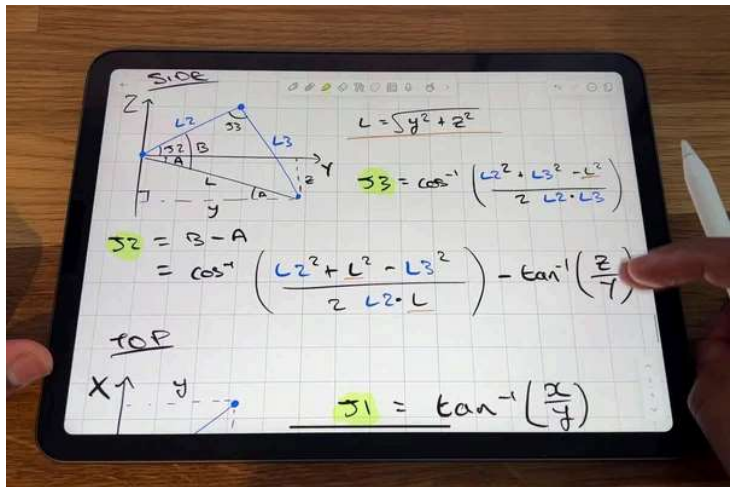 SIDE
Z
L2
L = √y² + z²
J3
L3
J2
B
A
Y
L
z
A
y
J3 = cos⁻¹ (L2² + L3² - L² / 2 L2·L3)
J2 = B - A
= cos⁻¹ (L2² + L² - L3² / 2 L2·L) - tan⁻¹ (z/y)
TOP
X
y
J1 = tan⁻¹ (x/y)